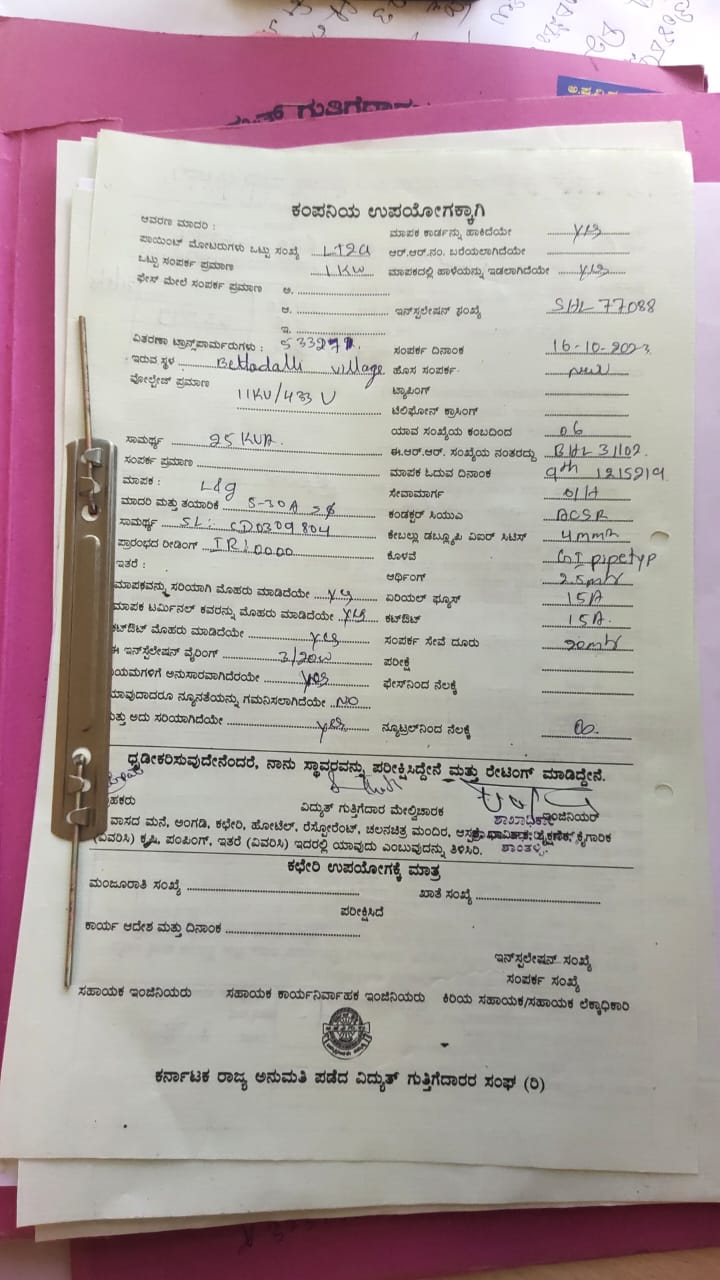 ಗುತ್ತಿಗೆದಾರ
ಕಂಪನಿಯ ಉಪಯೋಗಕ್ಕಾಗಿ
ಆವರಣ ಮಾದರಿ :
ಮಾಪಕ ಕಾರ್ಡನ್ನು ಹಾಕಿದೆಯೇ yes
ಪಾಯಿಂಟ್ ಮೋಟರುಗಳು ಒಟ್ಟು ಸಂಖ್ಯೆ LT2a ಆರ್.ಆರ್.ನಂ. ಬರೆಯಲಾಗಿದೆಯೇ
ಒಟ್ಟು ಸಂಪರ್ಕ ಪ್ರಮಾಣ 1 KW ಮಾಪಕದಲ್ಲಿ ಹಾಳೆಯನ್ನು ಇಡಲಾಗಿದೆಯೇ yes
ಫೇಸ್ ಮೇಲೆ ಸಂಪರ್ಕ ಪ್ರಮಾಣ ಅ.
ಆ. ಇನ್‌ಸ್ಟಲೇಷನ್ ಸಂಖ್ಯೆ SHL 77088
ಇ.
ವಿತರಣಾ ಟ್ರಾನ್ಸ್‌ಫಾರ್ಮರುಗಳು : ಸಂಪರ್ಕ ದಿನಾಂಕ 16-10-2023
ಇರುವ ಸ್ಥಳ Bettadalli village ಹೊಸ ಸಂಪರ್ಕ new
ವೋಲ್ಟೇಜ್ ಪ್ರಮಾಣ 11KV/433 V ಟ್ಯಾಪಿಂಗ್
ಟೆಲಿಫೋನ್ ಕ್ರಾಸಿಂಗ್
ಯಾವ ಸಂಖ್ಯೆಯ ಕಂಬದಿಂದ 06
ಸಾಮರ್ಥ್ಯ 25 KVA. ಈ.ಆರ್.ಆರ್. ಸಂಖ್ಯೆಯ ನಂತರದ್ದು BHL 31102.
ಸಂಪರ್ಕ ಪ್ರಮಾಣ ಮಾಪಕ ಓದುವ ದಿನಾಂಕ 9th
ಮಾಪಕ : L&g ಸೇವಾಮಾರ್ಗ O/H
ಮಾದರಿ ಮತ್ತು ತಯಾರಿಕೆ 5-30A ಕಂಡಕ್ಟರ್ ಸಿಯುಎ ACSR
ಸಾಮರ್ಥ್ಯ SL: CD0309804 ಕೇಬಲ್ಲು ಡಬ್ಲ್ಯೂಪಿ ವಿಐರ್ ಸಿಟಿಸ್ 4mm2
ಪ್ರಾರಂಭದ ರೀಡಿಂಗ್ IR:0000 ಕೊಳವೆ GI pipe typ
ಇತರೆ : ಆರ್ಥಿಂಗ್ 2.5mtr
ಮಾಪಕವನ್ನು ಸರಿಯಾಗಿ ಮೊಹರು ಮಾಡಿದೆಯೇ yes ಏರಿಯಲ್ ಫ್ಯೂಸ್ 15A
ಮಾಪಕ ಟರ್ಮಿನಲ್ ಕವರನ್ನು ಮೊಹರು ಮಾಡಿದೆಯೇ yes ಕಟ್‌ಔಟ್ 15A.
ಕಟ್‌ಔಟ್ ಮೊಹರು ಮಾಡಿದೆಯೇ yes ಸಂಪರ್ಕ ಸೇವೆ ದೂರು 20mtr
ಈ ಇನ್‌ಸ್ಟಲೇಷನ್ ವೈರಿಂಗ್ 3/20w ಪರೀಕ್ಷೆ
ಯಮಗಳಿಗೆ ಅನುಸಾರವಾಗಿದೆಯೇ yes ಫೇಸ್‌ನಿಂದ ನೆಲಕ್ಕೆ
ಯಾವುದಾದರೂ ನ್ಯೂನತೆಯನ್ನು ಗಮನಿಸಲಾಗಿದೆಯೇ NO
ಮತ್ತು ಅದು ಸರಿಯಾಗಿದೆಯೇ yes ನ್ಯೂಟ್ರಲ್‌ನಿಂದ ನೆಲಕ್ಕೆ
ಧೃಡೀಕರಿಸುವುದೇನೆಂದರೆ, ನಾನು ಸ್ಥಾವರವನ್ನು ಪರೀಕ್ಷಿಸಿದ್ದೇನೆ ಮತ್ತು ರೇಟಿಂಗ್ ಮಾಡಿದ್ದೇನೆ.
ಹಕರು ವಿದ್ಯುತ್ ಗುತ್ತಿಗೆದಾರ ಮೇಲ್ವಿಚಾರಕ ಇಂಜಿನಿಯರ್
ಶಾಖಾಧಿಕಾರಿ
ವಾಸದ ಮನೆ, ಅಂಗಡಿ, ಕಛೇರಿ, ಹೋಟೆಲ್, ರೆಸ್ಟೋರೆಂಟ್, ಚಲನಚಿತ್ರ ಮಂದಿರ, ಕೈಗಾರಿಕ
(ವಿವರಿಸಿ) ಕೃಷಿ, ಪಂಪಿಂಗ್, ಇತರೆ (ವಿವರಿಸಿ) ಇದರಲ್ಲಿ ಯಾವುದು ಎಂಬುವುದನ್ನು ತಿಳಿಸಿರಿ.
ಕಛೇರಿ ಉಪಯೋಗಕ್ಕೆ ಮಾತ್ರ
ಮಂಜೂರಾತಿ ಸಂಖ್ಯೆ ಖಾತೆ ಸಂಖ್ಯೆ
ಪರೀಕ್ಷಿಸಿದೆ
ಕಾರ್ಯ ಆದೇಶ ಮತ್ತು ದಿನಾಂಕ
ಇನ್‌ಸ್ಟಲೇಷನ್ ಸಂಖ್ಯೆ
ಸಂಪರ್ಕ ಸಂಖ್ಯೆ
ಸಹಾಯಕ ಇಂಜಿನಿಯರು ಸಹಾಯಕ ಕಾರ್ಯನಿರ್ವಾಹಕ ಇಂಜಿನಿಯರು ಕಿರಿಯ ಸಹಾಯಕ/ಸಹಾಯಕ ಲೆಕ್ಕಾಧಿಕಾರಿ
ಕರ್ನಾಟಕ ರಾಜ್ಯ ಅನುಮತಿ ಪಡೆದ ವಿದ್ಯುತ್ ಗುತ್ತಿಗೆದಾರರ ಸಂಘ (ರಿ)